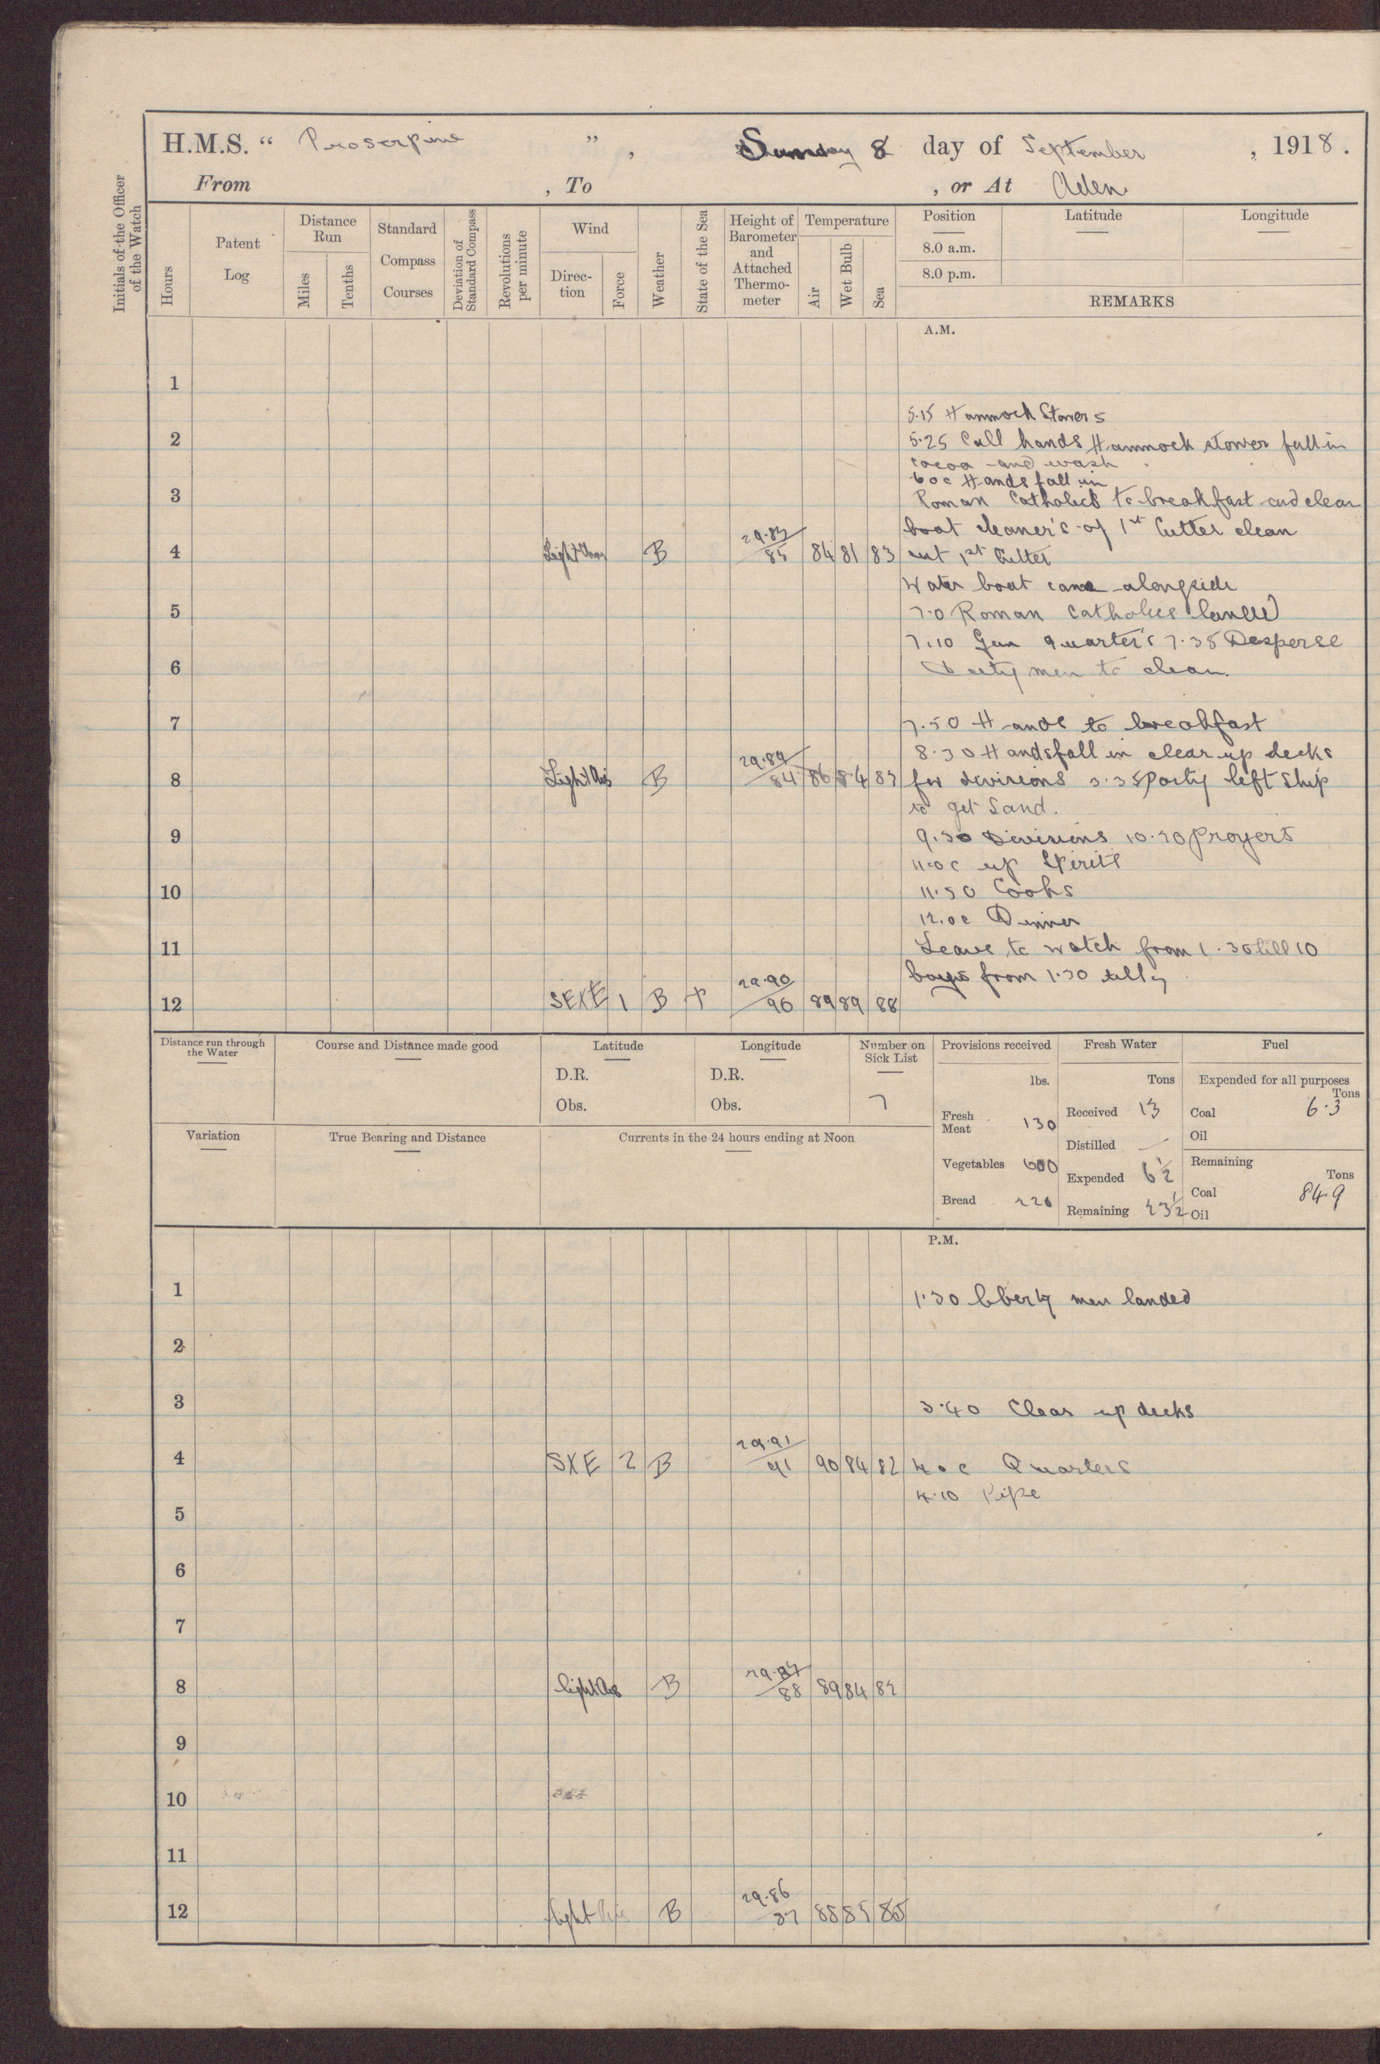 H.M.S. " Proserpine " , Sunday 8 day of September , 1918.
From , To , or At Aden
Initials of the Officer of the Watch
Hours
Patent Log
Distance Run
Miles
Tenths
Standard Compass Courses
Deviation of Standard Compass
Revolutions per minute
Wind
Direc-tion
Force
Weather
State of the Sea
Height of Barometer and Attached Thermo-meter
Temperature
Air
Wet Bulb
Sea
Position Latitude Longitude
8.0 a.m.
8.0 p.m.
REMARKS
A.M.
1
5.15 Hammock Stowers
2 5.25 Call hands Hammock stowers fall in
cocoa and wash
6 oc Hands fall in
3 Roman Catholics to breakfast and clean
boat cleaner's of 1st Cutter clean
4 Light B 29.83/85 84 81 83 out 1st Cutter
Water boat came alongside
5 7.0 Roman Catholics landed
7.10 Gun quarter's 7.35 Desperse
6 Duty men to clean.
7 7.50 Hands to breakfast
8.30 Hands fall in clear up decks
8 Light Airs B 29.89/84 86 84 83 for divisions 3.35 Party left ship
to get Sand.
9 9.30 Divisions 10.20 Prayers
11.oc up Spirits
10 11.50 Cooks
12.oc Dinner
11 Leave to watch from 1.30 till 10
boys from 1.30 till 7
12 SEXE 1 B 29.90/90 89 89 88
Distance run through the Water
Course and Distance made good
Latitude
D.R.
Obs.
Longitude
D.R.
Obs.
Number on Sick List
7
Provisions received
lbs.
Fresh Meat 130
Vegetables 600
Bread 220
Fresh Water
Tons
Received 13
Distilled —
Expended 6½
Remaining 23½
Fuel
Expended for all purposes
Tons
Coal 6.3
Oil
Remaining
Tons
Coal 84.9
Oil
Variation
True Bearing and Distance
Currents in the 24 hours ending at Noon
P.M.
1 1.30 liberty men landed
2
3 3.40 Clear up decks
4 SXE 2 B 29.91/91 90 84 82 4 oc Quarters
4.10 Pipe
5
6
7
8 light Airs B 29.87/88 89 84 82
9
10
11
12 light Airs B 29.86/87 88 85 85